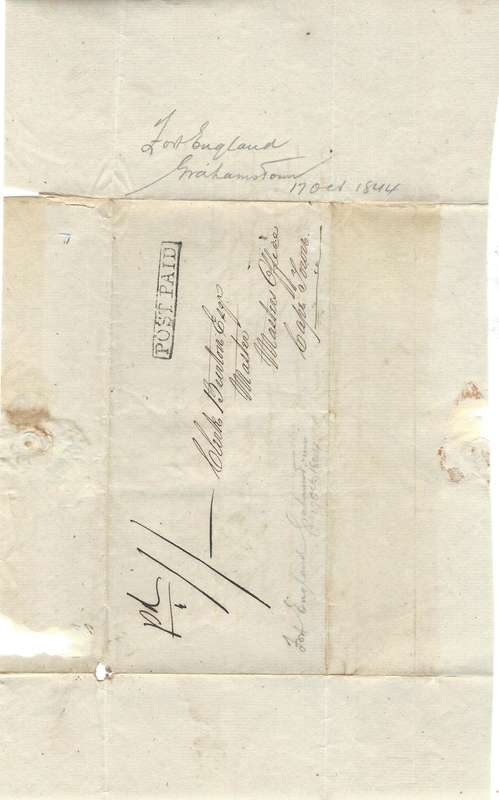 Fort England
Grahamstown
17 Oct 1844
POST PAID
Clerk Burton Esqr
Master
Masters Office
Cape Town
pd
Fort England Grahamstown